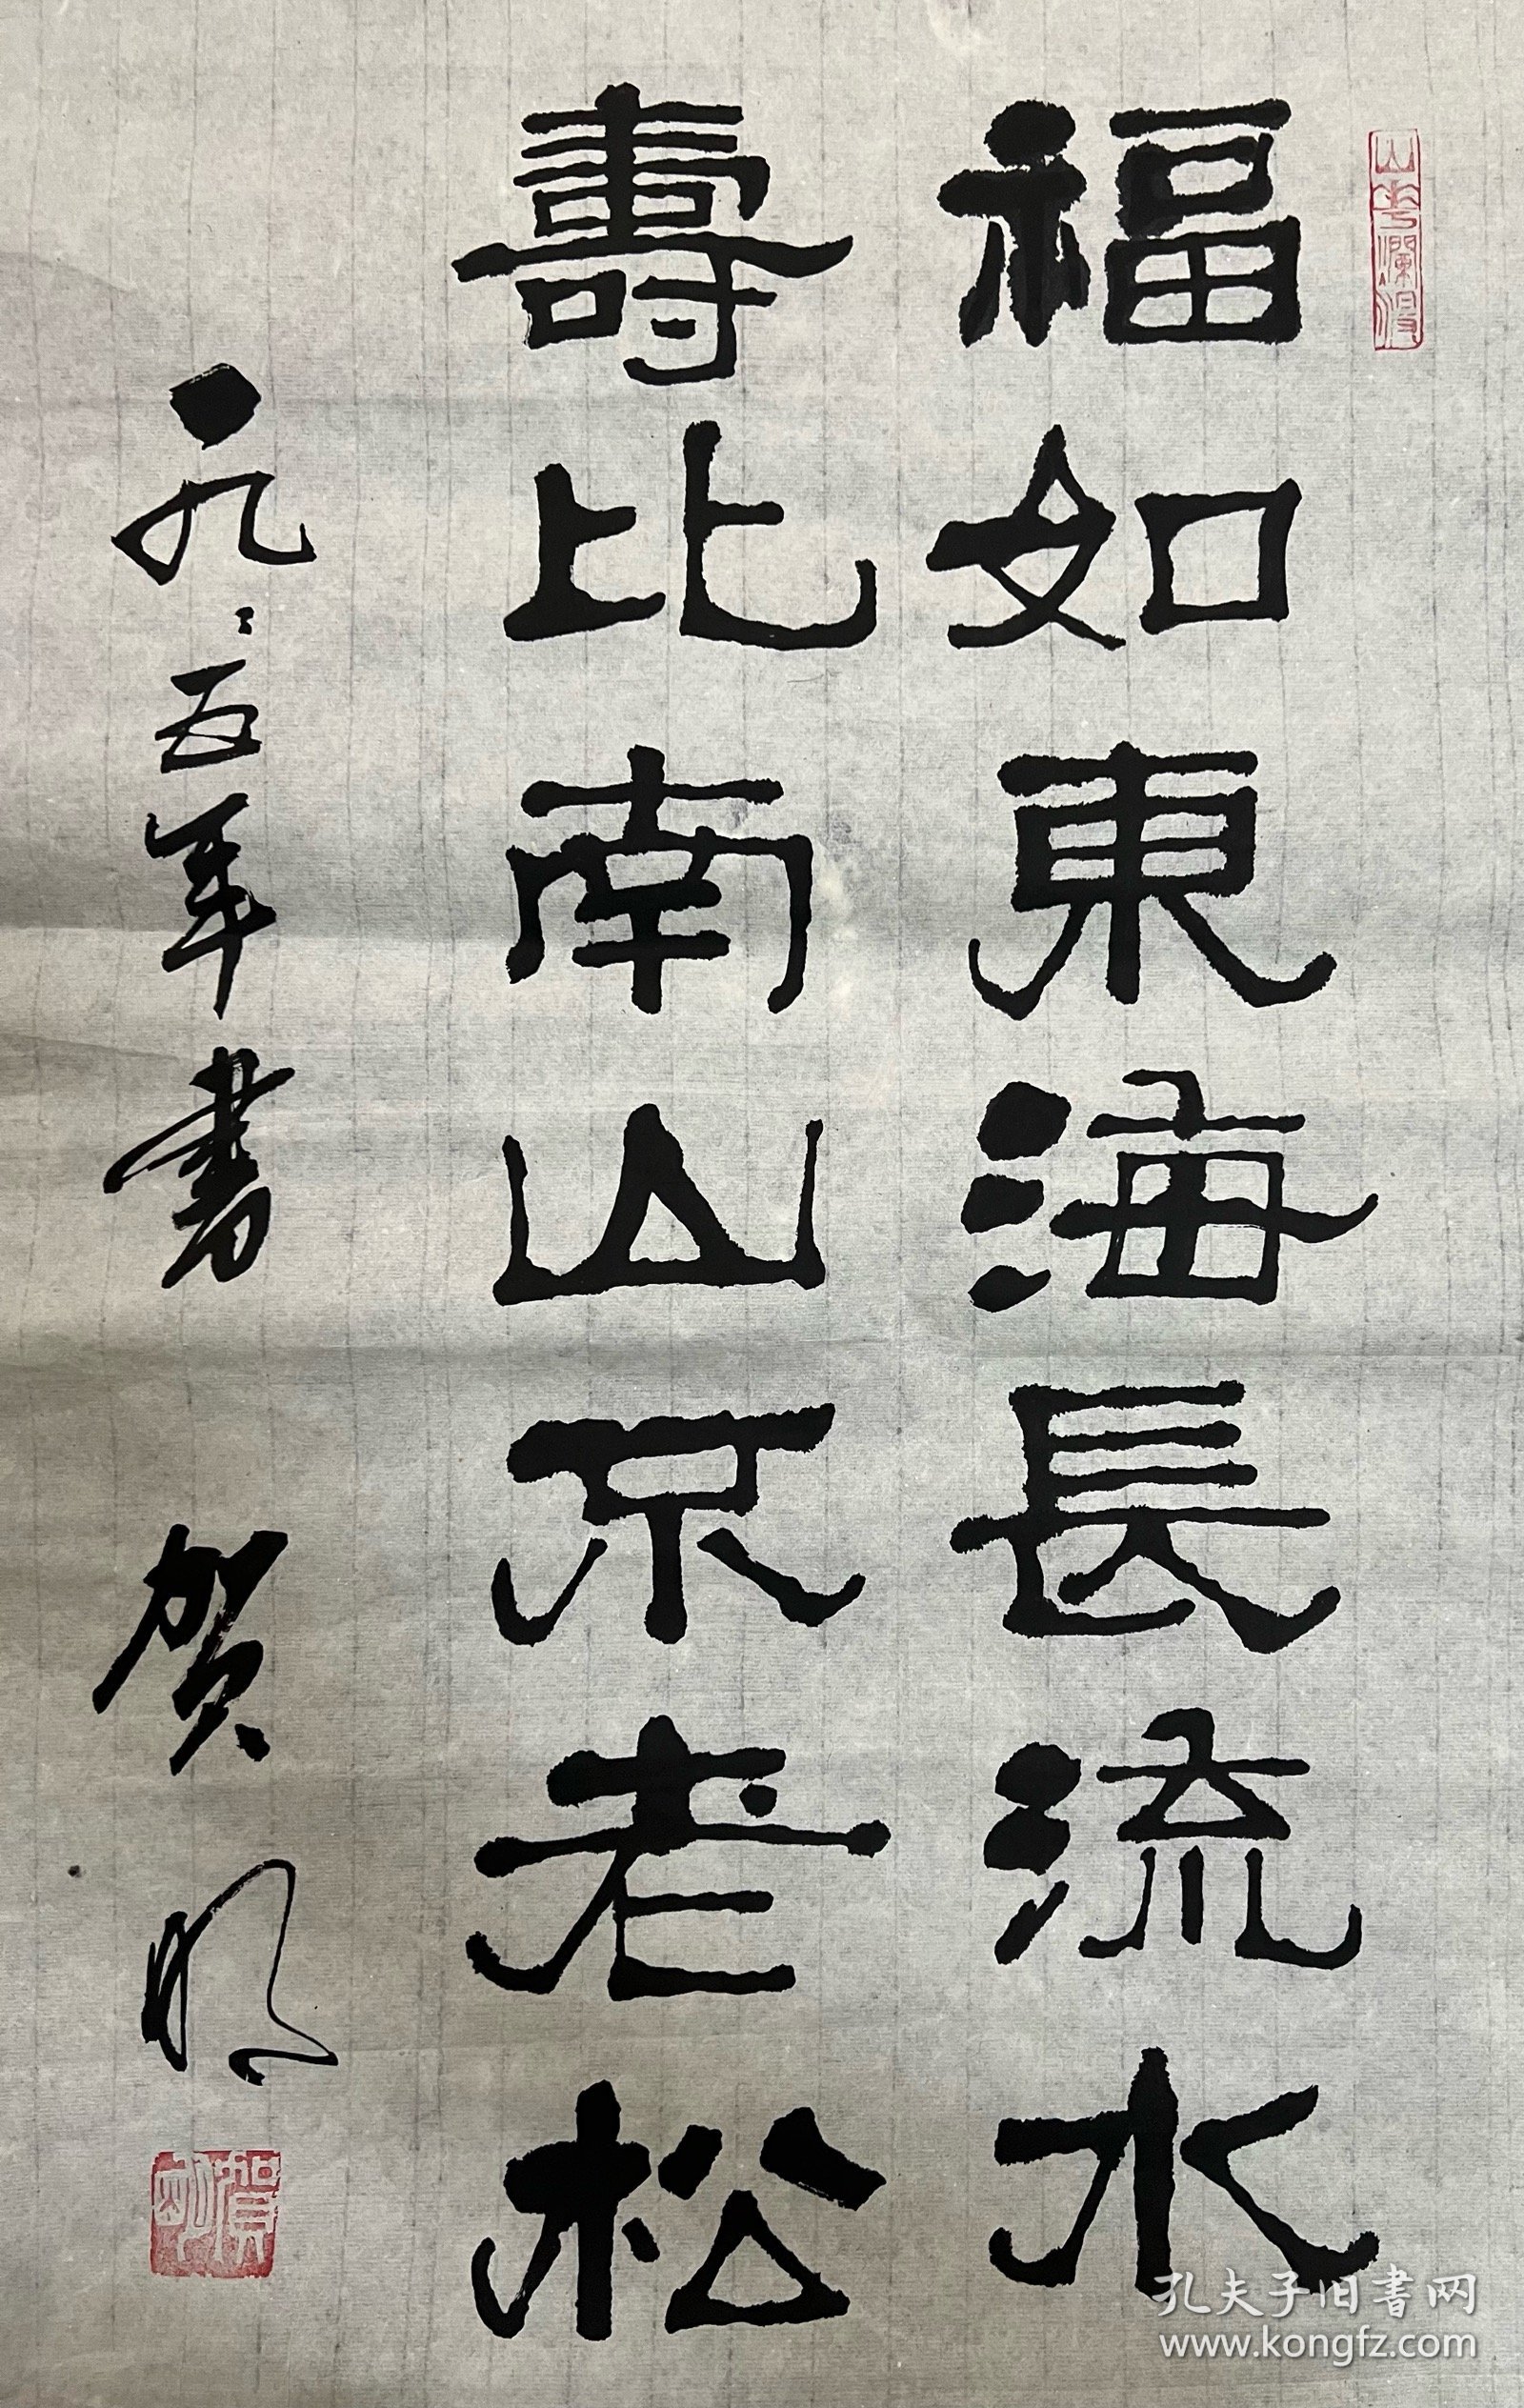 福如東海長流水
壽比南山不老松
一九〻五年書 贺明
賀明
孔夫子旧书网
www.kongfz.com